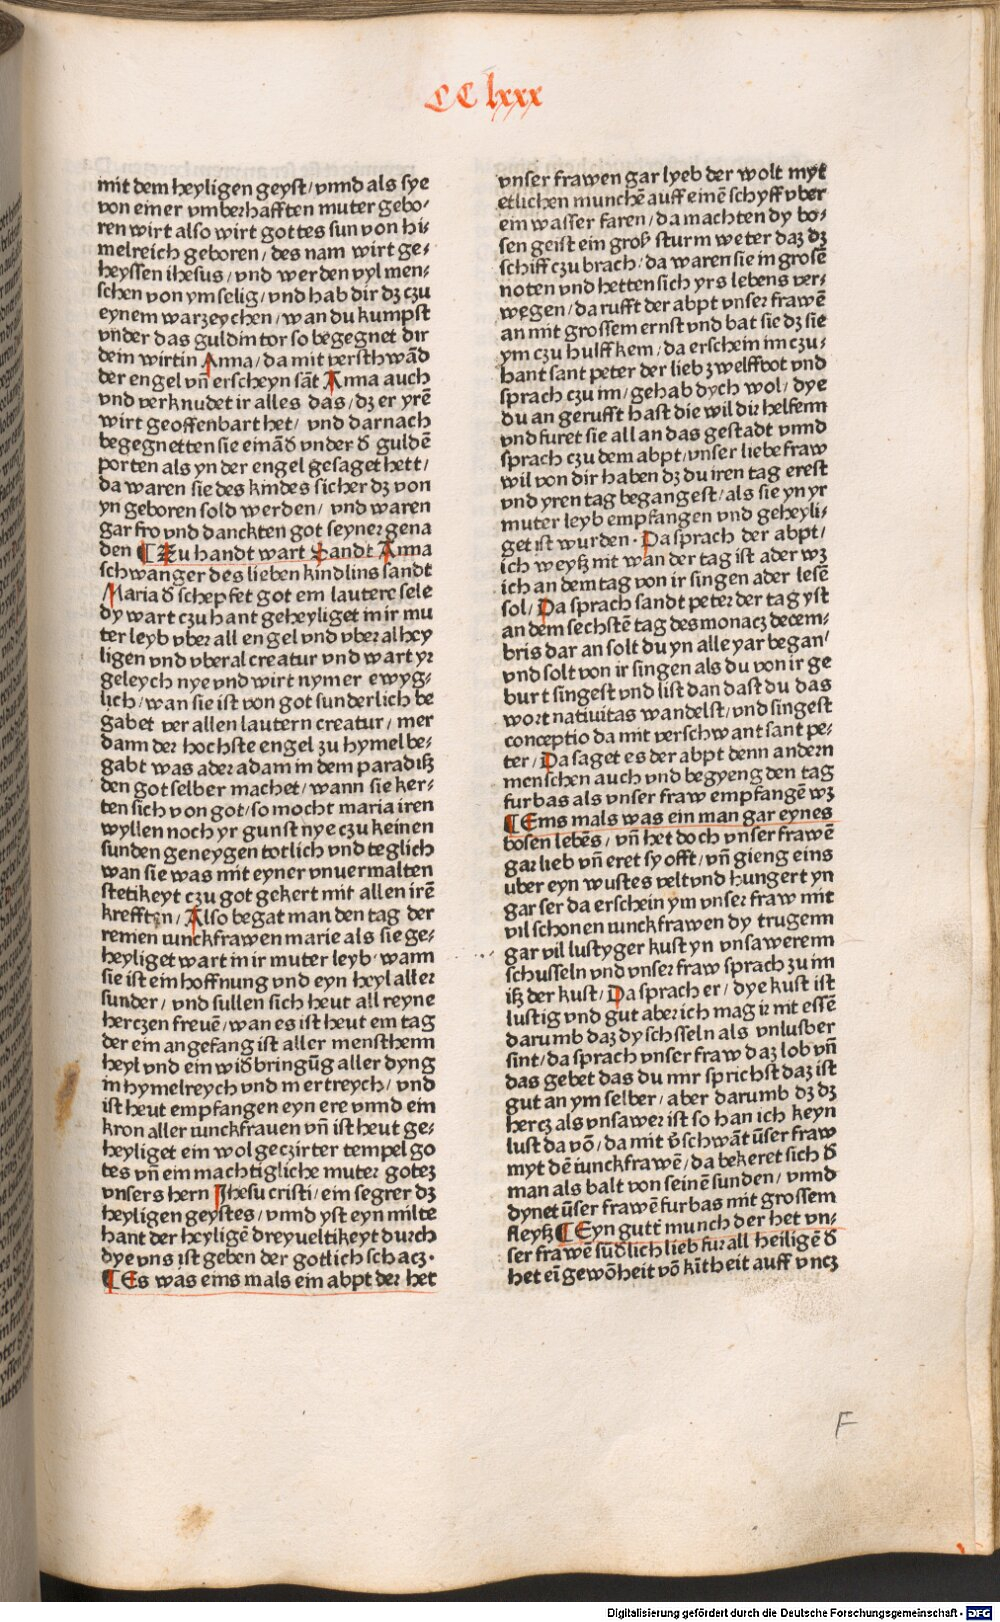 CC lxxx
mit dem heyligen geyst/ vnnd als sye
von einer vmberhafften muter gebo⸗
ren wirt also wirt gottes sun von hi⸗
melreich geboren/ des nam wirt ge⸗
heyssen ihesus/ vnd werden vyl men⸗
schen von ym selig/ vnd hab dir dz czu
eynem warzeychen/ wan du kumpst
vnder das guldin tor so begegnet dir
dein wirtin Anna/ da mit versthwād
der engel vn̄ erscheyn sāt Anna auch
vnd verknudet ir alles das/ dz er yrē
wirt geoffenbart het/ vnd darnach
begegnetten sie einād vnder d guldē
porten als yn der engel gesaget hett/
da waren sie des kindes sicher dz von
yn geboren sold werden/ vnd waren
gar fro vnd danckten got seyner gena
den ¶ Zu handt wart Sandt Anna
schwanger des lieben kindlins sandt
Maria d schepfet got ein lautere sele
dy wart czu hant geheyliget in ir mu
ter leyb vber all engel vnd vber al hey
ligen vnd vber al creatur vnd wart yr
geleych nye vnd wirt nymer ewyg⸗
lich/ wan sie ist von got sunderlich be
gabet ver allen lautern creatur/ mer
dann der hochste engel zu hymel be⸗
gabt was ader adam in dem paradisz
den got selber machet/ wann sie ker⸗
ten sich von got/ so mocht maria iren
wyllen noch yr gunst nye czu keinen
sunden geneygen totlich vnd teglich
wan sie was mit eyner vnuermalten
stetikeyt czu got gekert mit allen irē
krefften/ Also begat man den tag der
reinen iunckfrawen marie als sie ge⸗
heyliget wart in ir muter leyb· wann
sie ist ein hoffnung vnd eyn heyl aller
sunder/ vnd sullen sich heut all reyne
herczen freuē/ wan es ist heut ein tag
der ein angefang ist aller mensthenn
heyl vnd ein widbringūg aller dyng
in hymelreych vnd in ertreych/ vnd
ist heut empfangen eyn ere vnnd ein
kron aller iunckfrauen vn̄ ist heut ge⸗
heyliget ein wol geczirter tempel go
tes vn̄ ein machtigliche muter gotez
vnsers hern Jhesu cristi/ ein segrer dz
heyligen geystes/ vnnd yst eyn milte
hant der heyligē dreyueltikeyt durch
dye vns ist geben der gotlich schacz·
¶ Es was eins mals ein abpt der het
vnser frawen gar lyeb der wolt myt
etlichen munchē auff einē schyff vber
ein wasser faren/ da machten dy bo⸗
sen geist ein groß sturm weter daz dz
schiff czu brach/ da waren sie in grosē
noten vnd hetten sich yrs lebens ver⸗
wegen/ da rufft der abpt vnser frawē
an mit grossem ernst vnd bat sie dz sie
ym czu hulff kem/ da erschein im czu⸗
hant sant peter der lieb zwelffbot vnd
sprach czu im/ gehab dych wol/ dye
du an gerufft hast die wil dir helfenn
vnd furet sie all an das gestadt vnnd
sprach czu dem abpt/ vnser liebe fraw
wil von dir haben dz du iren tag erest
vnd yren tag begangest/ als sie yn yr
muter leyb empfangen vnd geheyli⸗
get ist wurden· Da sprach der abpt/
ich weysz nit wan der tag ist ader wz
ich an dem tag von ir singen ader lesē
sol/ Da sprach sandt peter der tag yst
an dem sechstē tag des monacz decem⸗
bris dar an solt du yn alle yar began/
vnd solt von ir singen als du von ir ge
burt singest vnd list dan dast du das
wort natiuitas wandelst/ vnd singest
conceptio da mit verschwant sant pe⸗
ter/ Da saget es der abpt denn andern
menschen auch vnd begyeng den tag
furbas als vnser fraw empfangē wz
¶ Eins mals was ein man gar eynes
bosen lebēs/ vn̄ het doch vnser frawē
gar lieb vn̄ eret sy offt/ vn̄ gieng eins
vber eyn wustes velt vnd hungert yn
gar ser da erschein ym vnser fraw mit
vil schonen iunckfrawen dy trugenn
gar vil lustyger kust yn vnsawerenn
schusseln vnd vnser fraw sprach zu im
isz der kust/ Da sprach er/ dye kust ist
lustig vnd gut aber ich mag ir nit essē
darumb daz dy schsseln als vnlusber
sint/ da sprach vnser fraw daz lob vn̄
das gebet das du mir sprichst daz ist
gut an ym selber/ aber darumb dz dz
hercz als vnsawer ist so han ich keyn
lust da vō/ da mit v̄schwāt ūser fraw
myt dē iunckfrawē/ da bekeret sich d
man als balt von seinē sunden/ vnnd
dynet ūser frawē furbas mit grossem
fleysz ¶ Eyn gutt munch der het vn⸗
ser frawē sūdlich lieb fur all heiligē d
het eī gewōheit vō kītheit auff vncz
F
Digitalisierung gefördert durch die Deutsche Forschungsgemeinschaft - DFG